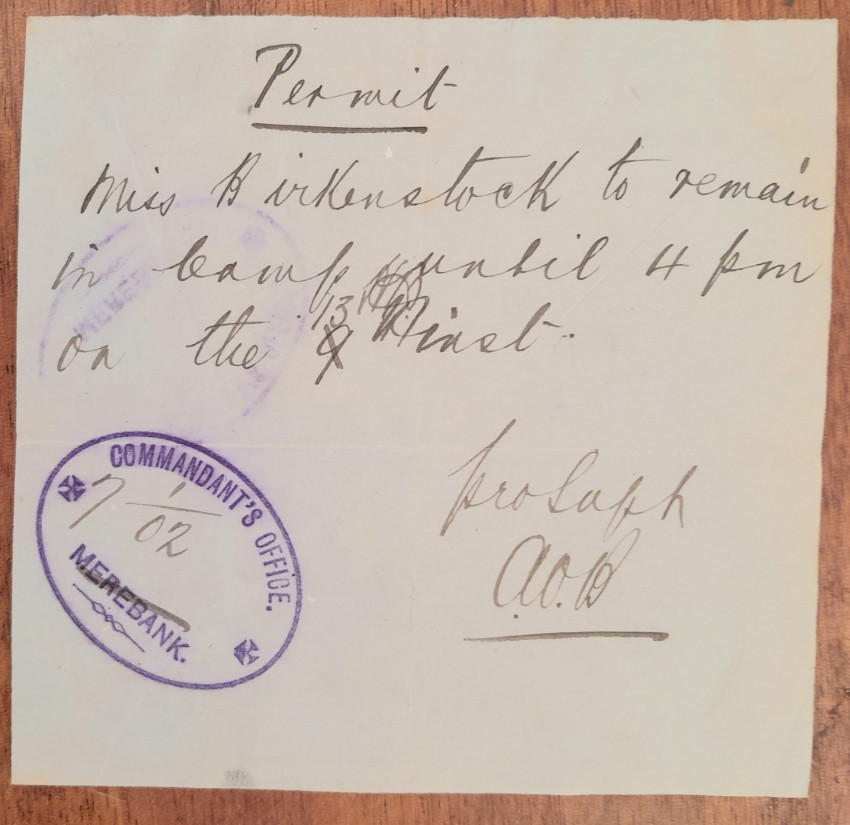 Permit
Miss Birkenstock to remain
in Camp until 4 pm
13th
on the 9 inst.
pro Supt
A.O.B
COMMANDANT'S OFFICE.
7/1/02
MEREBANK.